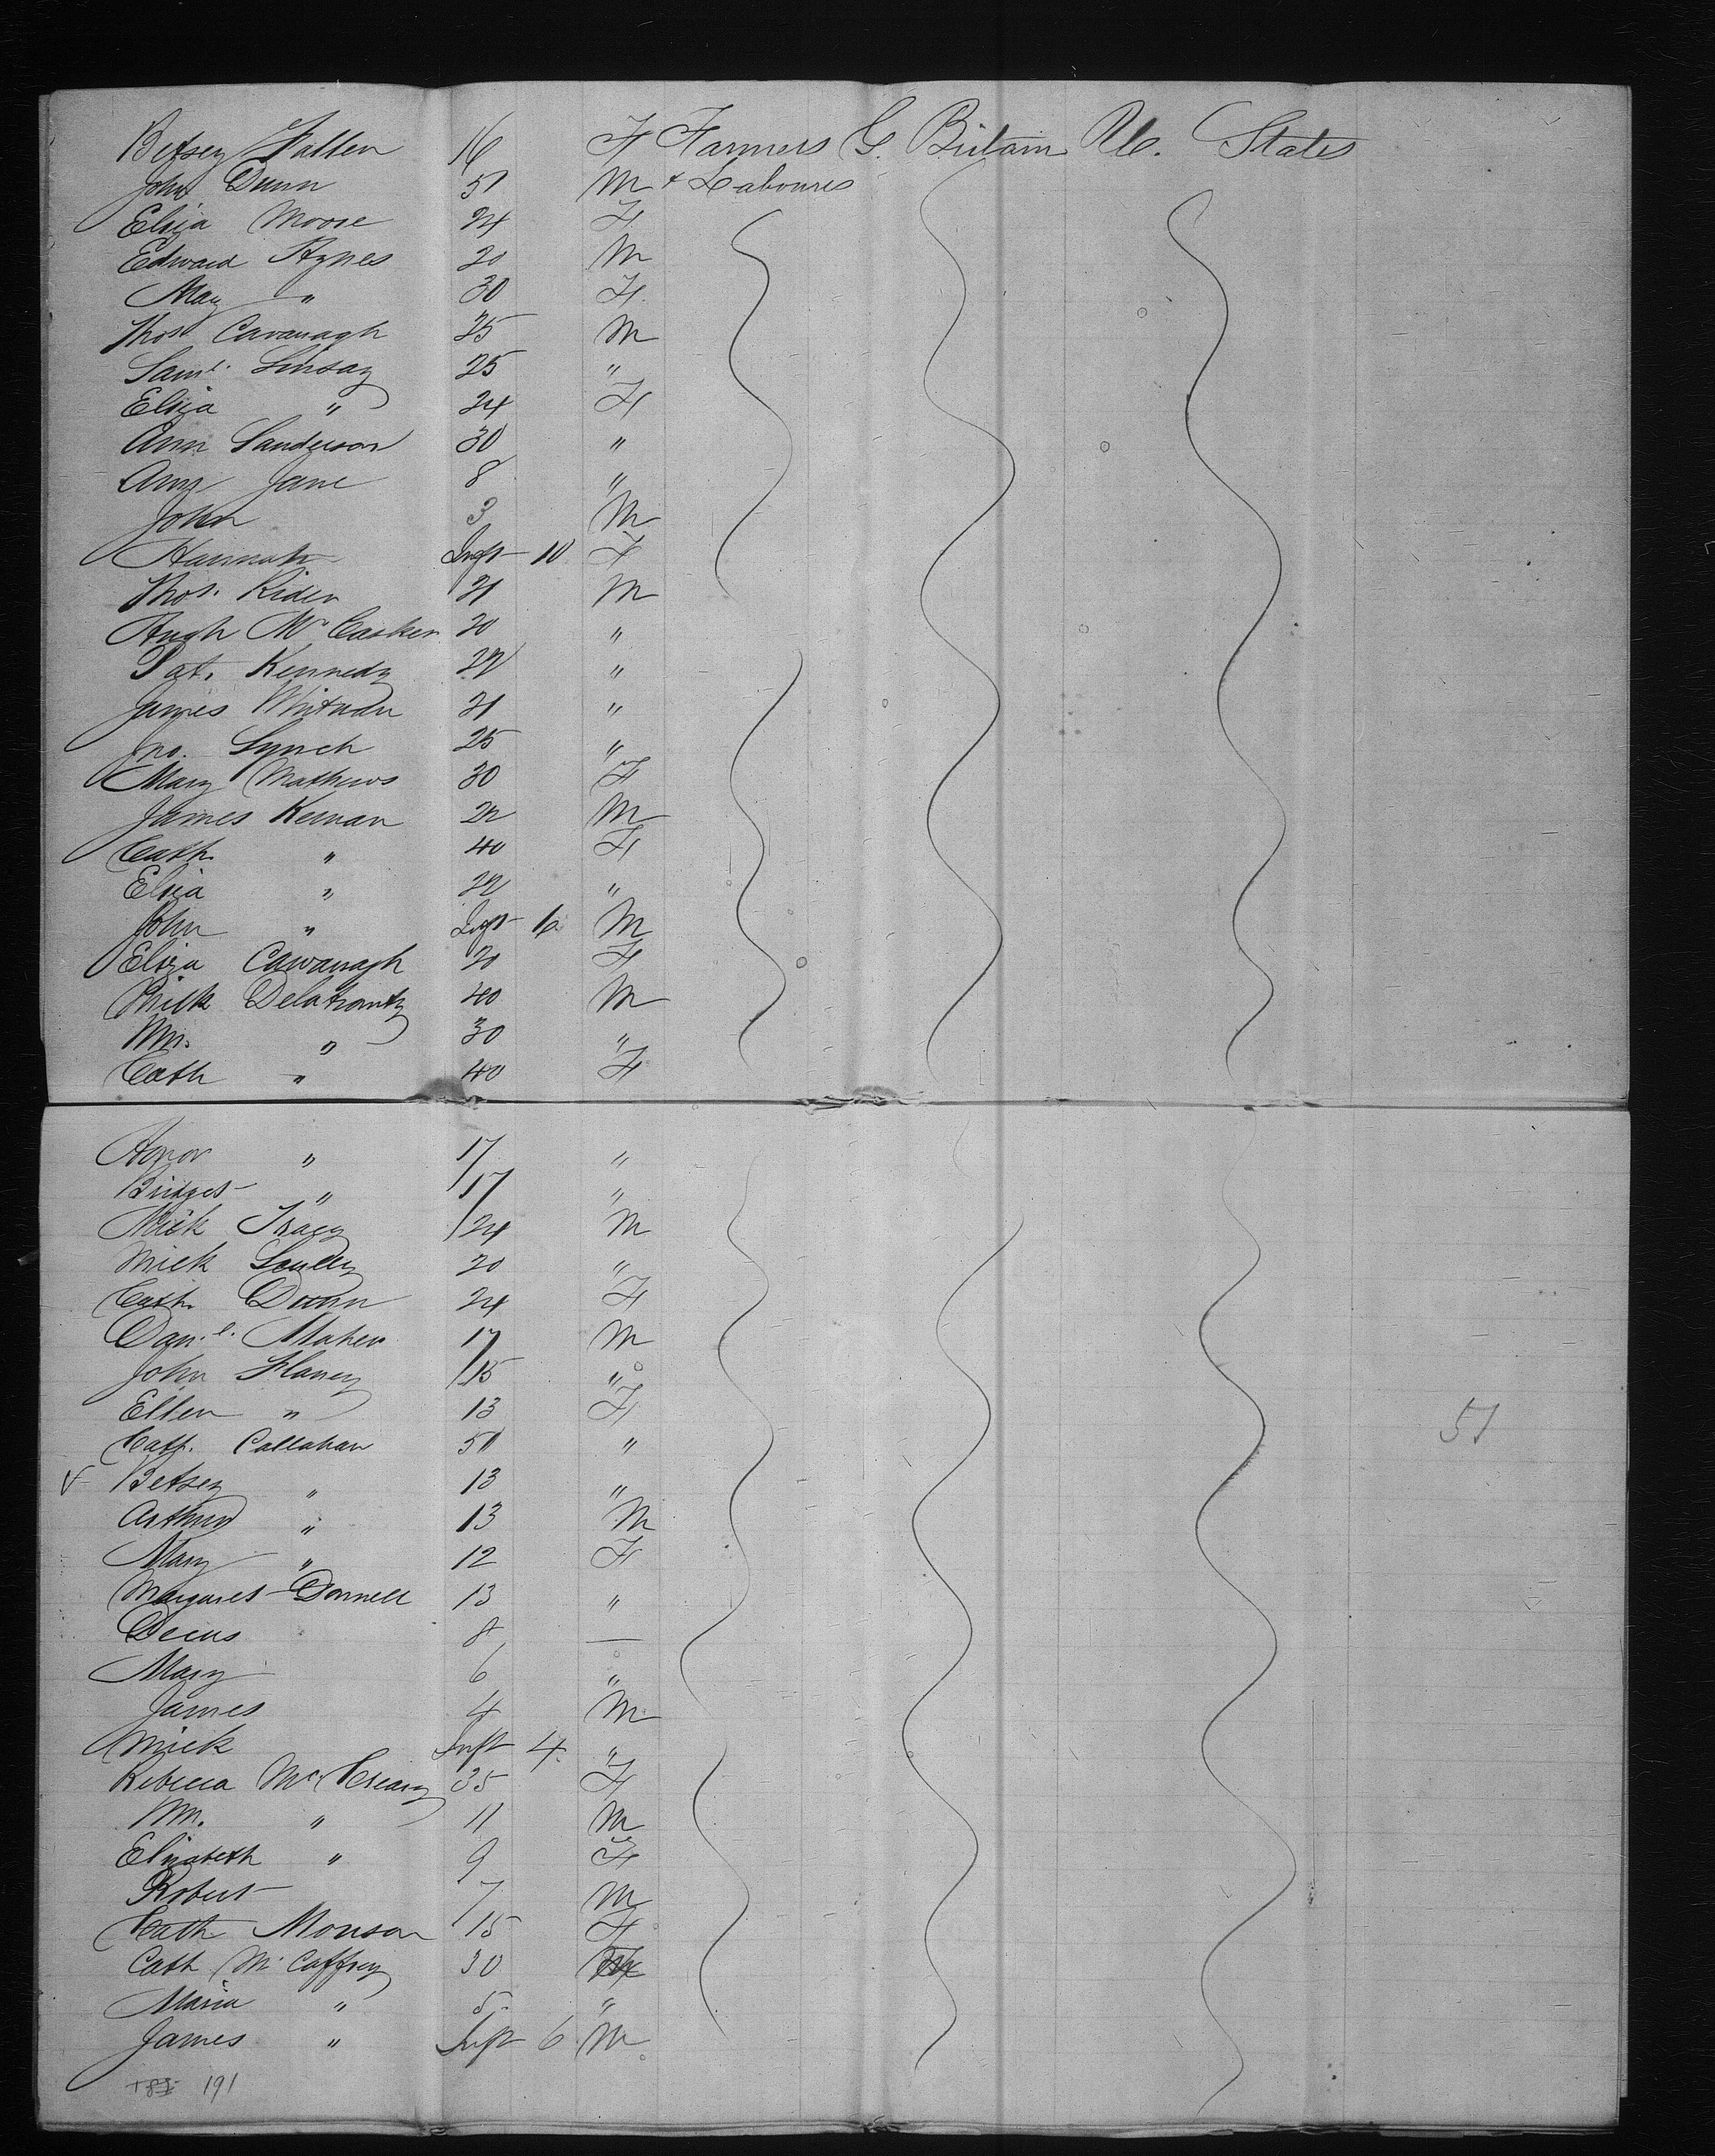 Betsey Fallen 16 F Farmers G. Britain U. States
John Dunn 51 M & Laboures
Eliza Moore 24 F
Edward Hynes 20 M
May " 30 F
Thos Cavanagh 25 M
Saml. Linsay 25 "
Eliza " 24 F
Ann Sanderson 30 "
Ann Jane 8 "
John 3 M
Hannah Inft 10 F
Thos. Rider 21 M
Hugh Mc Casker 20 "
Pat. Kennedy 22 "
James Whitman 21 "
Jno. Lynch 25 "
Mary Mathews 30 F
James Keenan 22 M
Cath. " 40 F
Eliza " 22 "
John " Inft 6 M
Eliza Cavanagh 20 F
Mick Delahanty 40 M
Wm. " 30 "
Cath " 40 F
Honor " 17 "
Bridget " 17 "
Mick Tracy 24 M
Mick Scully 20 "
Cath. Dunn 24 F
Danl. Maher 17 M
John Flanery 15 "
Ellen " 13 F
Cath. Callahan 50 " 51
Betsey " 13 "
Arthur " 13 M
Mary " 12 F
Margaret Donnell 13 "
8 —
Mary 6 "
James 4 M
Mick Inft 4 "
Rebecca Mc Creary 35 F
Wm. " 11 M
Elizabeth " 9 F
Robert 7 M
Cath Monson 15 F
Cath Mc Caffrey 30
Maria " 5 "
James " Inft 6 M
191